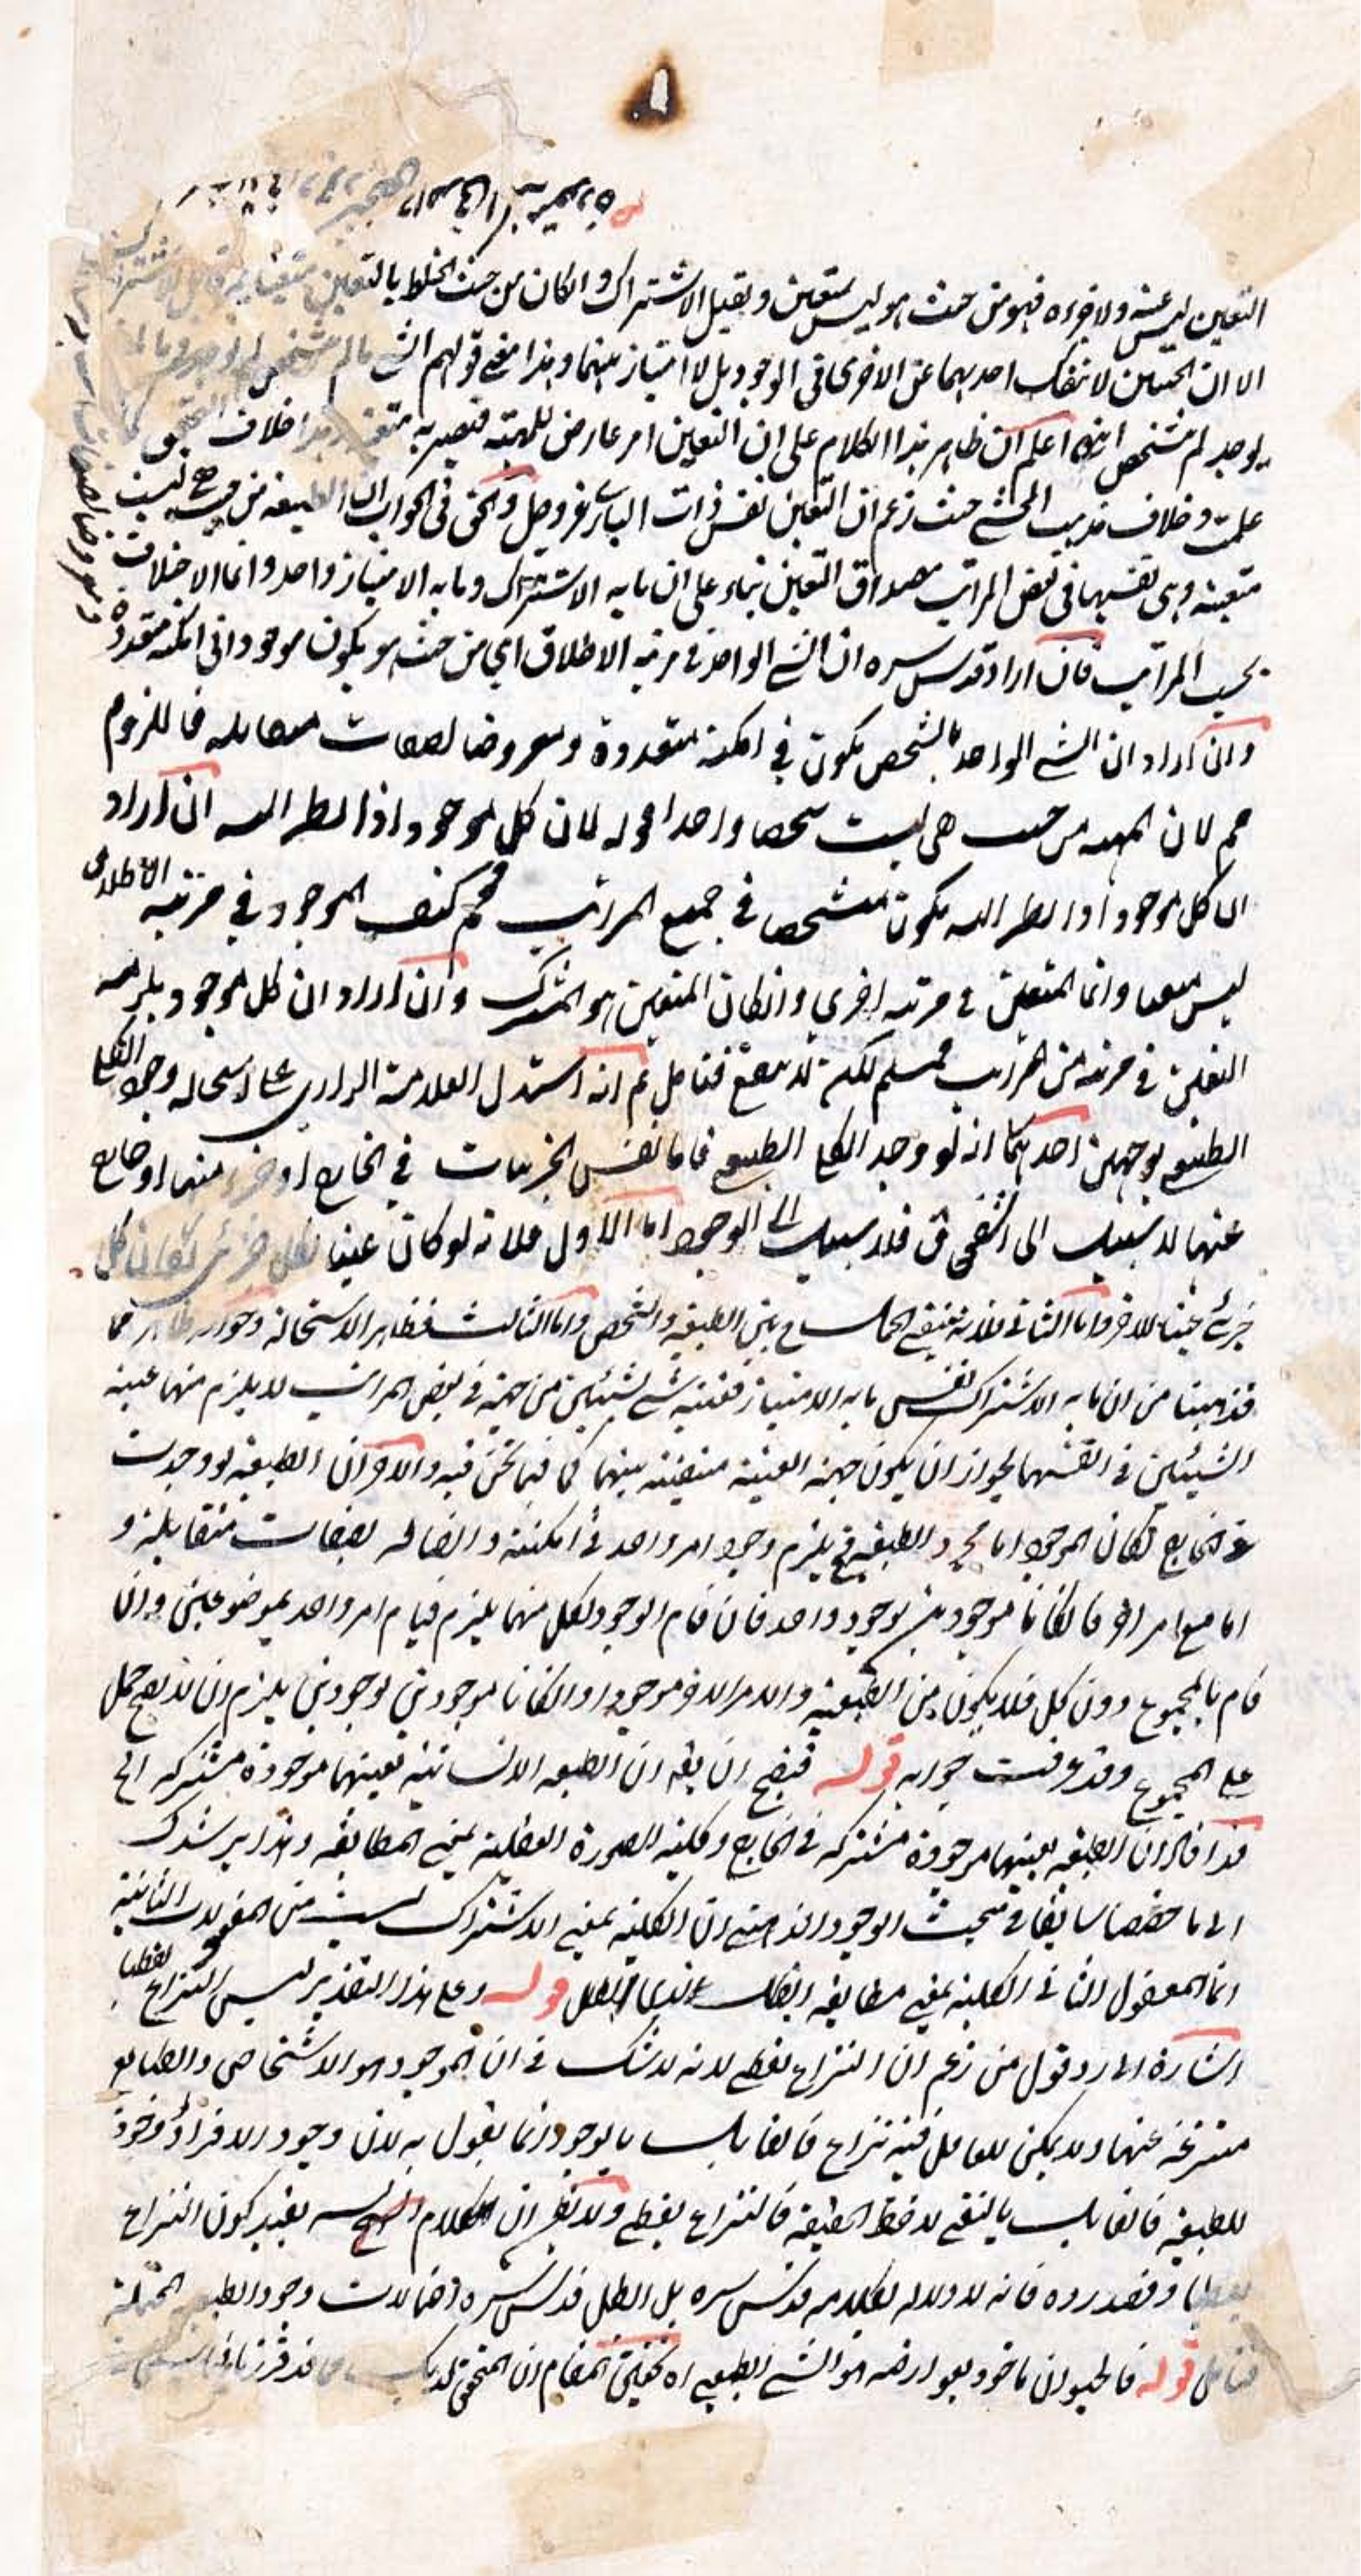 التعين ليس عينه ولا جزءه فهو من حيث هو ليس بمتعين ويقبل الاشتراك وان كان من حيث الخلط بالتعين متعينا
الا ان الحيثيتين لا تنفك احديهما عن الاخرى في الوجود بل لا امتياز بينهما وهذا معنى قولهم الشي ما لم يتشخص لم يوجد وما لم
يوجد لم يتشخص انتهى اعلم ان ظاهر هذا الكلام على ان التعين امر عارض للمهية فتصير به متعينة وهذا خلاف التحقيق كما
علمت وخلاف مذهب المحشي حيث زعم ان التعين نفس ذات الباري عز وجل والحق في الجواب ان الطبيعة من حيث هي ليست
متعينة وهي نفسها في بعض المراتب مصداق التعين بناء على ان ما به الاشتراك وما به الامتياز واحد وانما الاختلاف
بحسب المراتب فان اراد قدس سره ان الشي الواحد في مرتبة الاطلاق اي من حيث هو يكون موجودا في امكنة متعددة
وان اراد ان الشي الواحد بالشخص يكون في امكنة متعددة ومعروضا لصفات متقابلة فاللزوم
مم لان المهية من حيث هي ليست شخصا واحدا قوله لان كل موجود اذا نظر اليه ان اراد
ان كل موجود اذا نظر اليه يكون متشخصا في جميع المراتب فمم كيف الموجود في مرتبة الاطلاق
ليس متعينا وانما المتعين في مرتبة اخرى وان كان المتعين هو المشترك وان اراد ان كل موجود يلزمه
التعين في مرتبة من المراتب فمسلم لكنه لا ينفع فتامل ثم انه استدل العلامة الرازي على استحالة وجود الكلي
الطبيعي بوجهين احدهما انه لو وجد الكلي الطبيعي فاما نفس الجزئيات في الخارج او جزء منها او خارج
عنها لا سبيل الى الشقوق فلا سبيل الى الوجود اما الاول فلانه لو كان عينا لكل جزئي لكان كل
جزئي عينا للاخر واما الثاني فلانه ينتفي الحمل ح بين الطبيعة والشخص واما الثالث فظاهر الاستحالة وجوابه ظاهر مما
قد بينا من ان ما به الاشتراك نفس ما به الامتياز فعينية شي لشيئين من جهة في بعض المراتب لا يلزم منها عينية
الشيئين في انفسهما لجواز ان يكون جهة العينية منتفية بينهما كما فيما نحن فيه والاخر ان الطبيعة لو وجدت
في الخارج لكان الموجود اما مجرد الطبيعة فح يلزم وجود امر واحد في امكنة واتصافه بصفات متقابلة و
اما مع امر اخر فان كانا موجودين بوجود واحد فان قام الوجود لكل منهما يلزم قيام امر واحد بموضوعين وان
قام بالمجموع دون كل فلا يكون من الطبيعة والامر الاخر موجودا وان كانا موجودين بوجودين يلزم ان لا يصح حمل
على المجموع وقد عرفت جوابه قوله فيصح ان يق ان الطبيعة الانسانية بعينها موجودة مشتركة الى
قد افاد ان الطبيعة بعينها موجودة مشتركة في الخارج وكلية الصورة العقلية بمعنى المطابقة وهذا يرشدك
الى ما حققنا سابقا في مبحث الوجود الذهني ان الكلية بمعنى الاشتراك ليست من المعقولات الثانية
انما المعقول الثاني الكلية بمعنى مطابقة قوله وعلى هذا التقدير ليس النزاع لفظيا
اشارة الى رد قول من زعم ان النزاع لفظي لانه لا شك في ان الموجود هو الاشخاص والطبائع
منتزعة عنها ولا يمكن للعاقل فيه نزاع فالقائل بالوجود انما يقول به لان وجود الافراد وجود
للطبيعة فالقائل بالنفي لاحظ الحقيقة فالنزاع لفظي ولا يظن ان الكلام يفيد كون النزاع
لفظيا وقصد رده فانه لا دلالة لكلامه قدس سره بل ابطل قدس سره احتمالات وجود الطبيعة المحتملة
فتامل قوله فالحيوان ماخوذ بعوارضه هو الشي الطبيعي اه تحقيق المقام ان المحقق